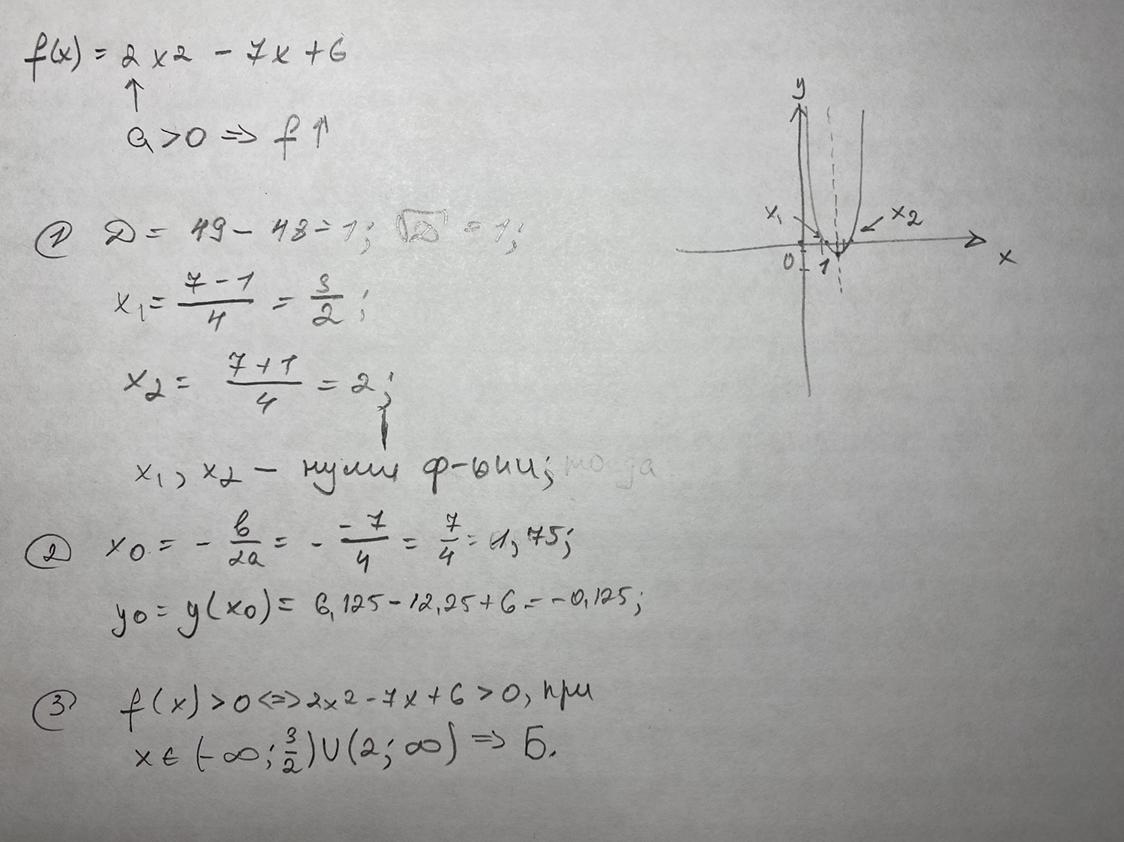 f(x) = 2x2 - 7x + 6
↑
a > 0 => f ↑
① D = 49 - 48 = 1; √D = 1;
x1 = 7 - 1 / 4 = 3 / 2;
x2 = 7 + 1 / 4 = 2;
x1, x2 - нули ф-ции;
② x0 = - b / 2a = - -7 / 4 = 7 / 4 = 1,75;
y0 = y(x0) = 6,125 - 12,25 + 6 = -0,125;
③ f(x) > 0 <=> 2x2 - 7x + 6 > 0, при
x ∈ (-∞; 3/2) ∪ (2; ∞) => Б.
y
x1
x2
0
1
x